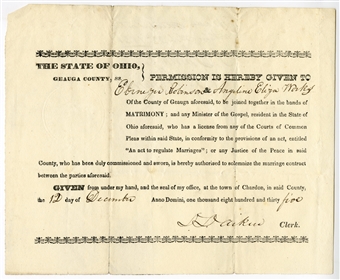 THE STATE OF OHIO,
GEAUGA COUNTY, ss.
PERMISSION IS HEREBY GIVEN TO
Ebenezer Robinson & Angeline Eliza Works
Of the County of Geauga aforesaid, to be joined together in the bands of
MATRIMONY: and any Minister of the Gospel, resident in the State of
Ohio aforesaid, who has a license from any of the Courts of Common
Pleas within said State, in conformity to the provisions of an act, entitled
"An act to regulate Marriages"; or any Justice of the Peace in said
County, who has been duly commissioned and sworn, is hereby authorised to solemnize the marriage contract
between the parties aforesaid.
GIVEN from under my hand, and the seal of my office, at the town of Chardon, in said County,
the 12 day of December Anno Domini, one thousand eight hundred and thirty five
D. D. Aiken Clerk.